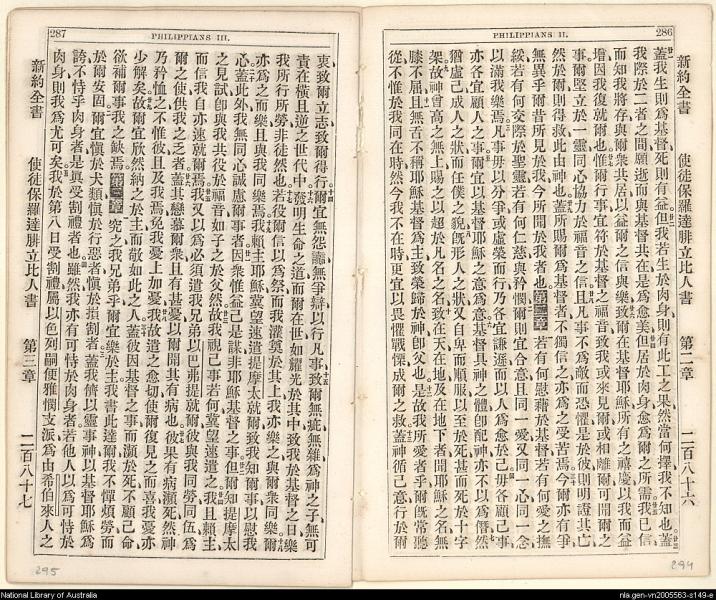 PHILIPPIANS II.
286
新約全書 使徒保羅達腓立比人書 第二章 二百八十六
蓋我生則爲基督死則有益但我若生於肉身則有此工之果然當何擇我不知也蓋
我際於二者之間願逝而與基督共在是爲愈美但居於肉身愈爲爾之所需我已信
而知我將存與爾衆共居以益爾之信與樂致爾在基督耶穌所有之禧慶以我而益
增因我復就爾也惟爾行事宜符於基督之福音致我或來見爾或相離爾可聞爾之
事爾堅立於一靈同心協力於福音之信且凡事不爲敵而恐懼是於彼則明證其亡
然於爾則得救此由神也蓋所賜爾爲基督者不獨信之亦爲之受苦焉今爾亦有爭
無異乎爾昔所見於我今所聞於我者也第二章若有何慰藉於基督若有何愛之撫
綏若有何交際於聖靈若有何仁慈與矜憫爾則宜合意且同一愛又同一心同一念
以滿我樂焉凡事毋以分爭或虛榮而行乃各宜謙遜而以人爲愈於己毋各顧己事
亦各宜顧人之事爾宜以基督耶穌之意爲意基督具神之體卽配神亦不以爲僭然
猶虛己成人之狀而任僕之貌旣形人之狀又自卑而順服以至於死甚而死於十字
架故神曾高之無上賜之以超於凡名之名致在天在地及在地下者聞耶穌之名無
膝不屈且無舌不稱耶穌基督爲主致榮歸於神卽父也是故我所愛者乎爾旣常聽
從不惟於我同在時然今我不在時更宜以畏懼戰慄成爾之救蓋神循己意行於爾
PHILIPPIANS III.
287
衷致爾立志致爾得行爾宜無怨讟無爭辯以行凡事致爾無疵無雜爲神之子無可
責在橫且逆之世代中發明生命之道而爾在世如耀光於其中致我於基督之日樂
我所行所勞非徒然也若役爾信以爲祭而我灌奠於其上我亦樂之與爾衆同樂爾
亦爲之而樂且與我同樂焉我賴主耶穌冀望速遣提摩太就爾致我知爾事以慰我
心蓋此外我無同心誠慮爾事者因衆惟益己是謀非耶穌基督之事但爾知提摩太
之見試卽與我共役於福音如子之於父然故我視己事若何冀望速遣之我且賴主
而信我自亦速就爾焉我又以爲必須遣我兄弟以巴弗提就爾彼與我同勞同伍爲
爾之使供我之乏者蓋其戀慕爾衆且有甚憂以爾聞其有病也彼果有病瀕死然神
乃矜恤之不惟彼且及我焉免我憂上加憂我故遣之愈切使爾復見之而喜我憂亦
少解矣故爾宜欣然納之於主而敬如此之人蓋彼因基督之事而瀕於死不顧己命
欲補爾事我之缺焉第三章究之我兄弟乎爾宜樂於主我書此達爾我不憚煩勞而
於爾安固爾宜愼於犬類愼於行惡者愼於損割者蓋我儕以靈事神以基督耶穌爲
誇不恃乎肉身者是眞受割禮者也雖然我亦有可恃於肉身者若他人以爲可恃於
肉身則我爲尤可矣我於第八日受割禮屬以色列嗣便雅憫支派爲由希伯來人之
新約全書 使徒保羅達腓立比人書 第三章 二百八十七
295
294
National Library of Australia
nla.gen-vn2005563-s149-e